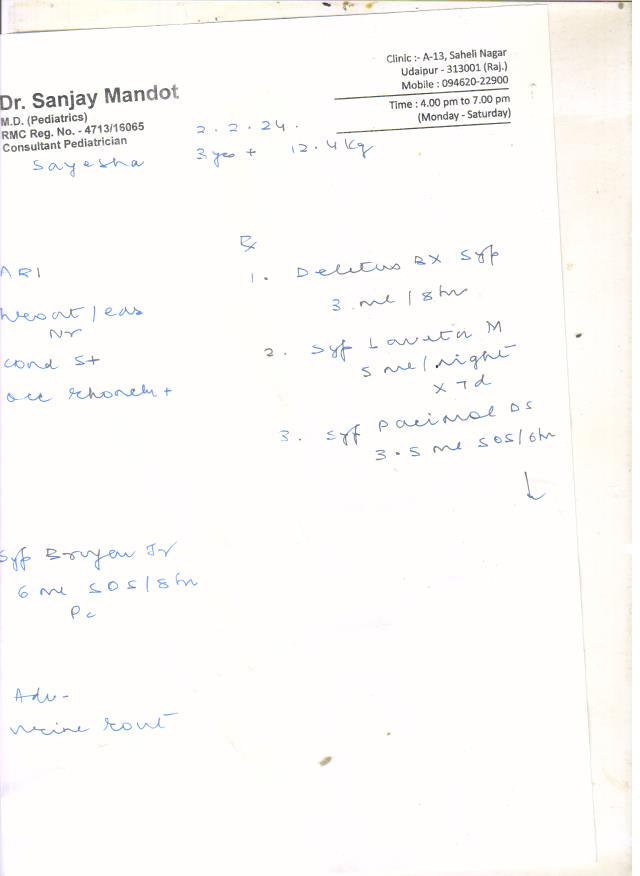 Dr. Sanjay Mandot
M.D. (Pediatrics)
RMC Reg. No. - 4713/16065
Consultant Pediatrician
Clinic :- A-13, Saheli Nagar
Udaipur - 313001 (Raj.)
Mobile : 094620-22900
Time : 4.00 pm to 7.00 pm
(Monday - Saturday)
2.2.24.
Sayesha
3 yrs + 12.4 kg
ARI
Throat / ears
Nr
cond S+
occ rhonchi +
Rx
1. Deletus BX Syp
3 ml / 8 hr
2. Syp M
5 ml / night
x 7d
3. Syp Pacimol DS
3.5 ml SOS/6hr
Syp Jr
6 ml SOS/8hr
Pc
Adv-
Urine rout